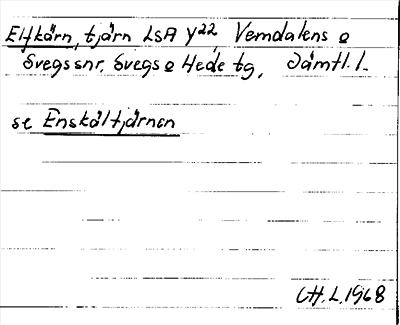 Elfkärn, tjärn LSA Y22, Vemdalens o
Svegs snr, Svegs o Hede tg, Jämtl. l.
se Enskåltjärnen
CH. L. 1968